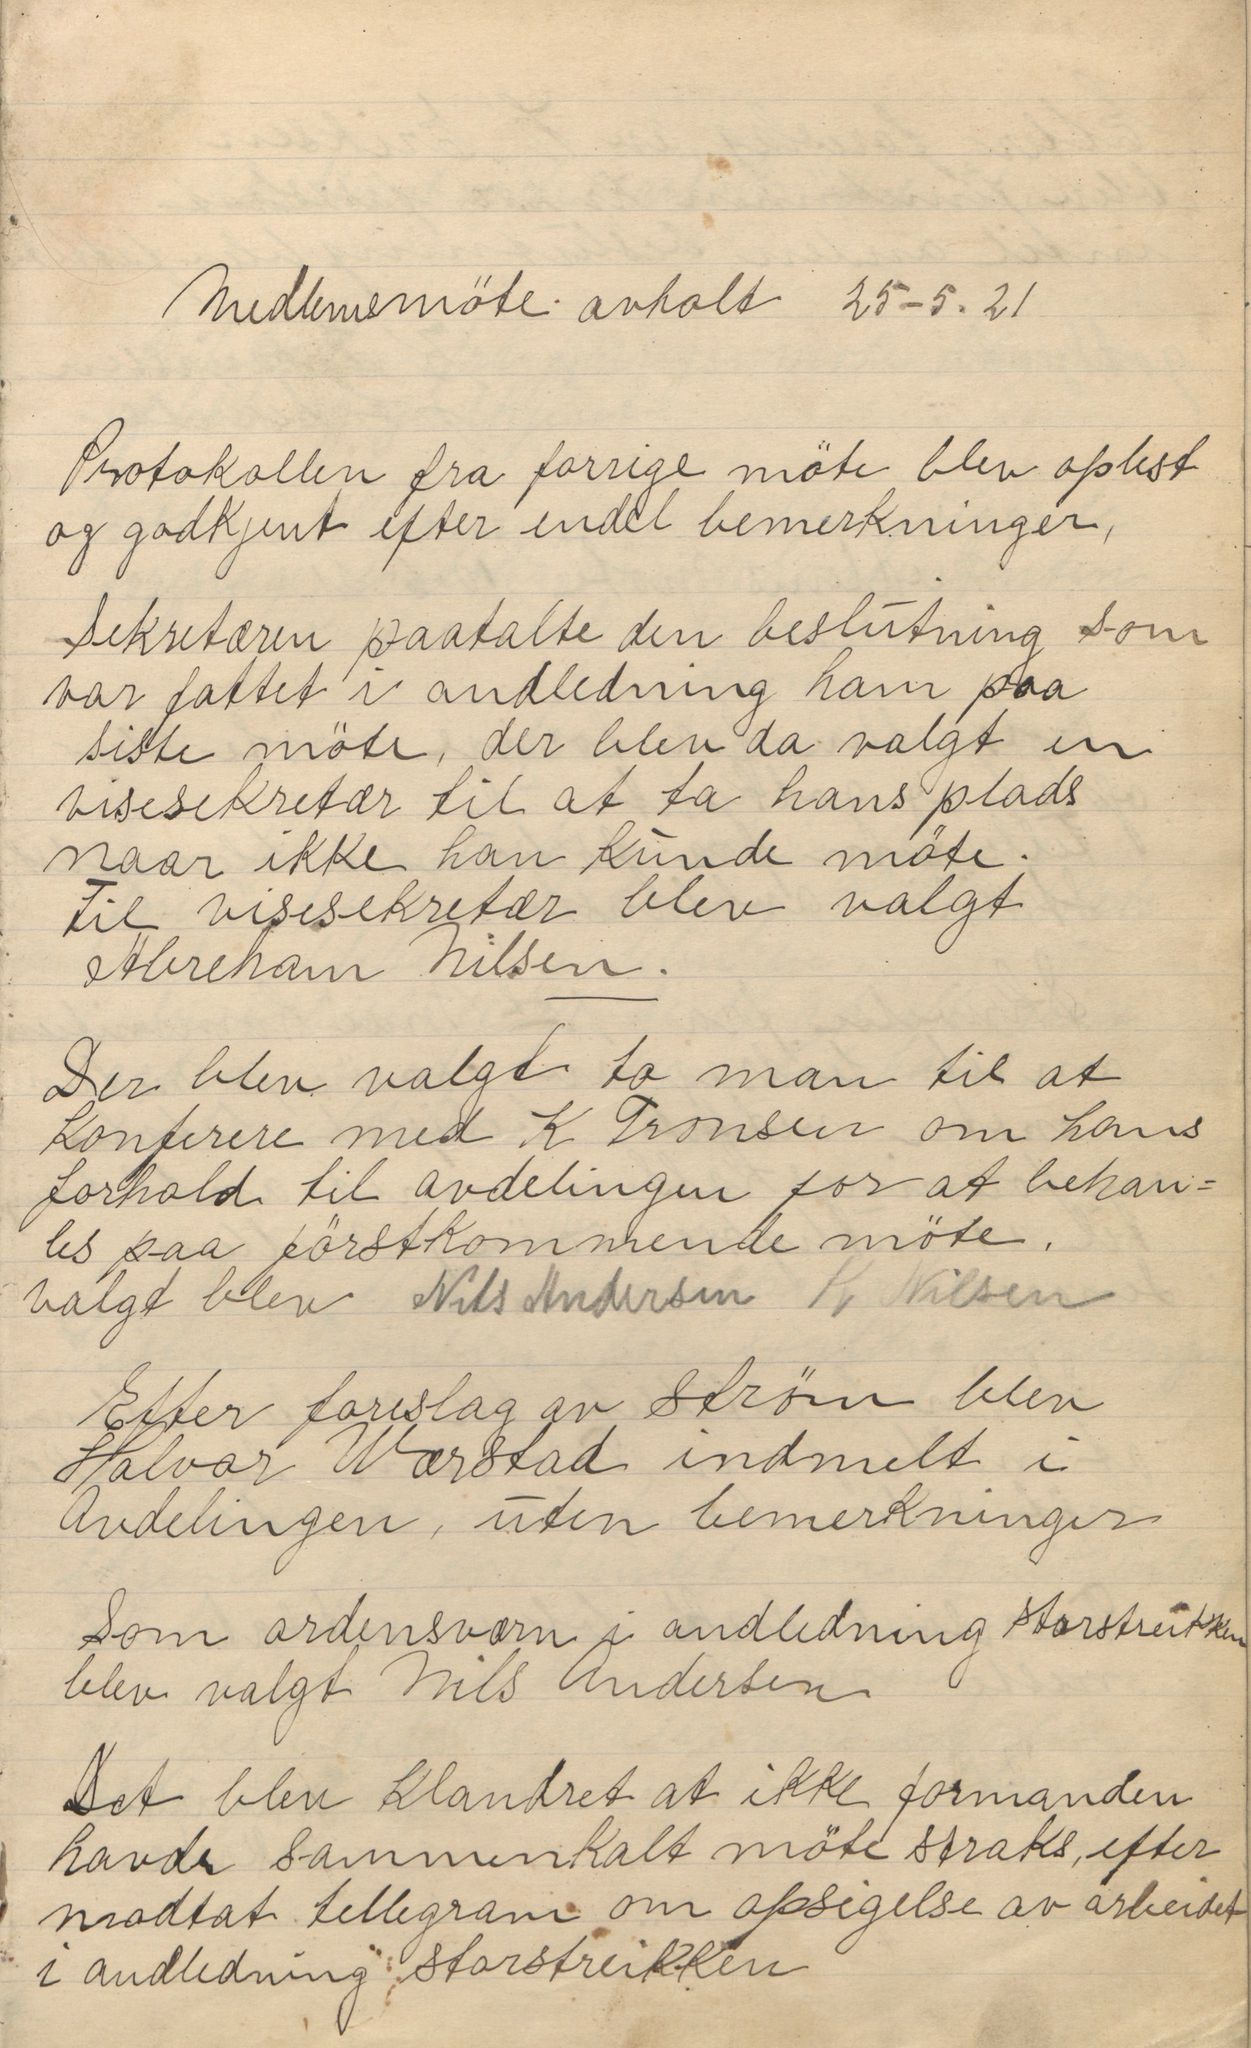 Medlemsmöte avholt 25-5. 21
Protokollen fra forrige möte blev oplest
og godkjent efter endel bemerkninger,
Sekretæren paatalte den beslutning som
var fattet i andledning ham paa
siste möte, der blev da valgt en
visesekretær til at ta hans plads
naar ikke han kunde möte.
Til visesekretær blev valgt
Abreham Nilsen.
Der blev valgt to man til at
konferere med K Tronsen om hans
forhold til avdelingen for at behan=
les paa förstkommende möte.
valgt blev Nils Andersen Nilsen
Efter foreslag av Ström blev
Halvar Wærstad indmelt i
Avdelingen, uten bemerkninger
Som ordensværn i andledning storstreikken
blev valgt Nils Andersen
Det blev klandret at ikke formanden
havde sammenkalt möte straks, efter
modtat tellegram om opsigelse av arbeidet
i andledning storstreikken